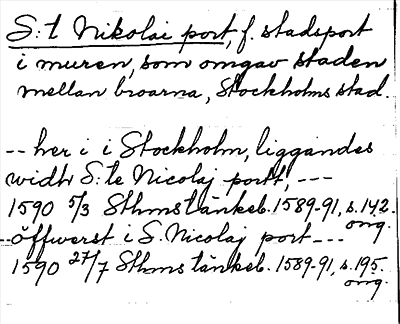 S:t Nikolai port, f. stadsport
i muren, som omgav staden
mellan broarna, Stockholms stad.
-- her i i Stockholm, liggandes
widh S:te Nicolaj portt, ---
1590 5/3 Sthms tänkeb. 1589-91, s. 142.
orig.
-- öffwerst i S. Nicolaj port ---
1590 27/7 Sthms tänkeb. 1589-91, s. 195.
orig.